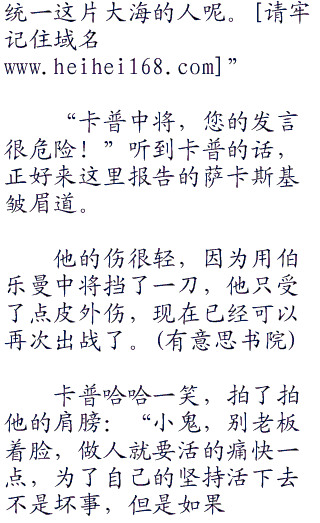 统一这片大海的人呢。[请牢
记住域名
www.heihei168.com]”
“卡普中将，您的发言
很危险！”听到卡普的话，
正好来这里报告的萨卡斯基
皱眉道。
他的伤很轻，因为用伯
乐曼中将挡了一刀，他只受
了点皮外伤，现在已经可以
再次出战了。(有意思书院)
卡普哈哈一笑，拍了拍
他的肩膀：“小鬼，别老板
着脸，做人就要活的痛快一
点，为了自己的坚持活下去
不是坏事，但是如果